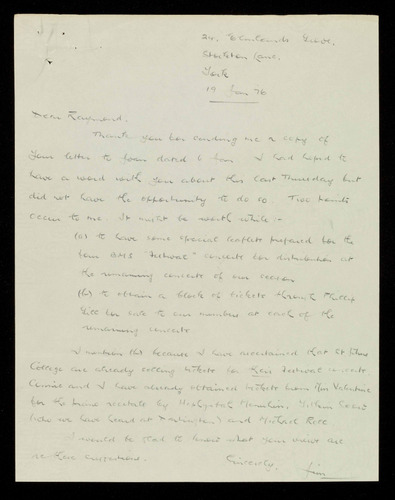 24, Elmlands Grove,
Stockton Lane,
York
19 Jan 76
Dear Raymond,
Thank you for sending me a copy of
your letter to dated 6 Jan. I had hoped to
have a word with you about this last Thursday but
did not have the opportunity to do so. Two points
occur to me. It might be worth while :-
(a) to have some special leaflets prepared for the
four BMS "Festival" concerts for distribution at
the remaining concerts of our season
(b) to obtain a block of tickets through Phillip
for sale to our members at each of the
remaining concerts.
I mention this because I have ascertained that St Johns
College are already selling tickets for their Festival concerts
and I have already obtained tickets from Mrs Valentine
for the piano recitals by
(who we have heard at ) and Michael Roll.
I would be glad to know what your views are
on these suggestions.
Sincerely, Jim